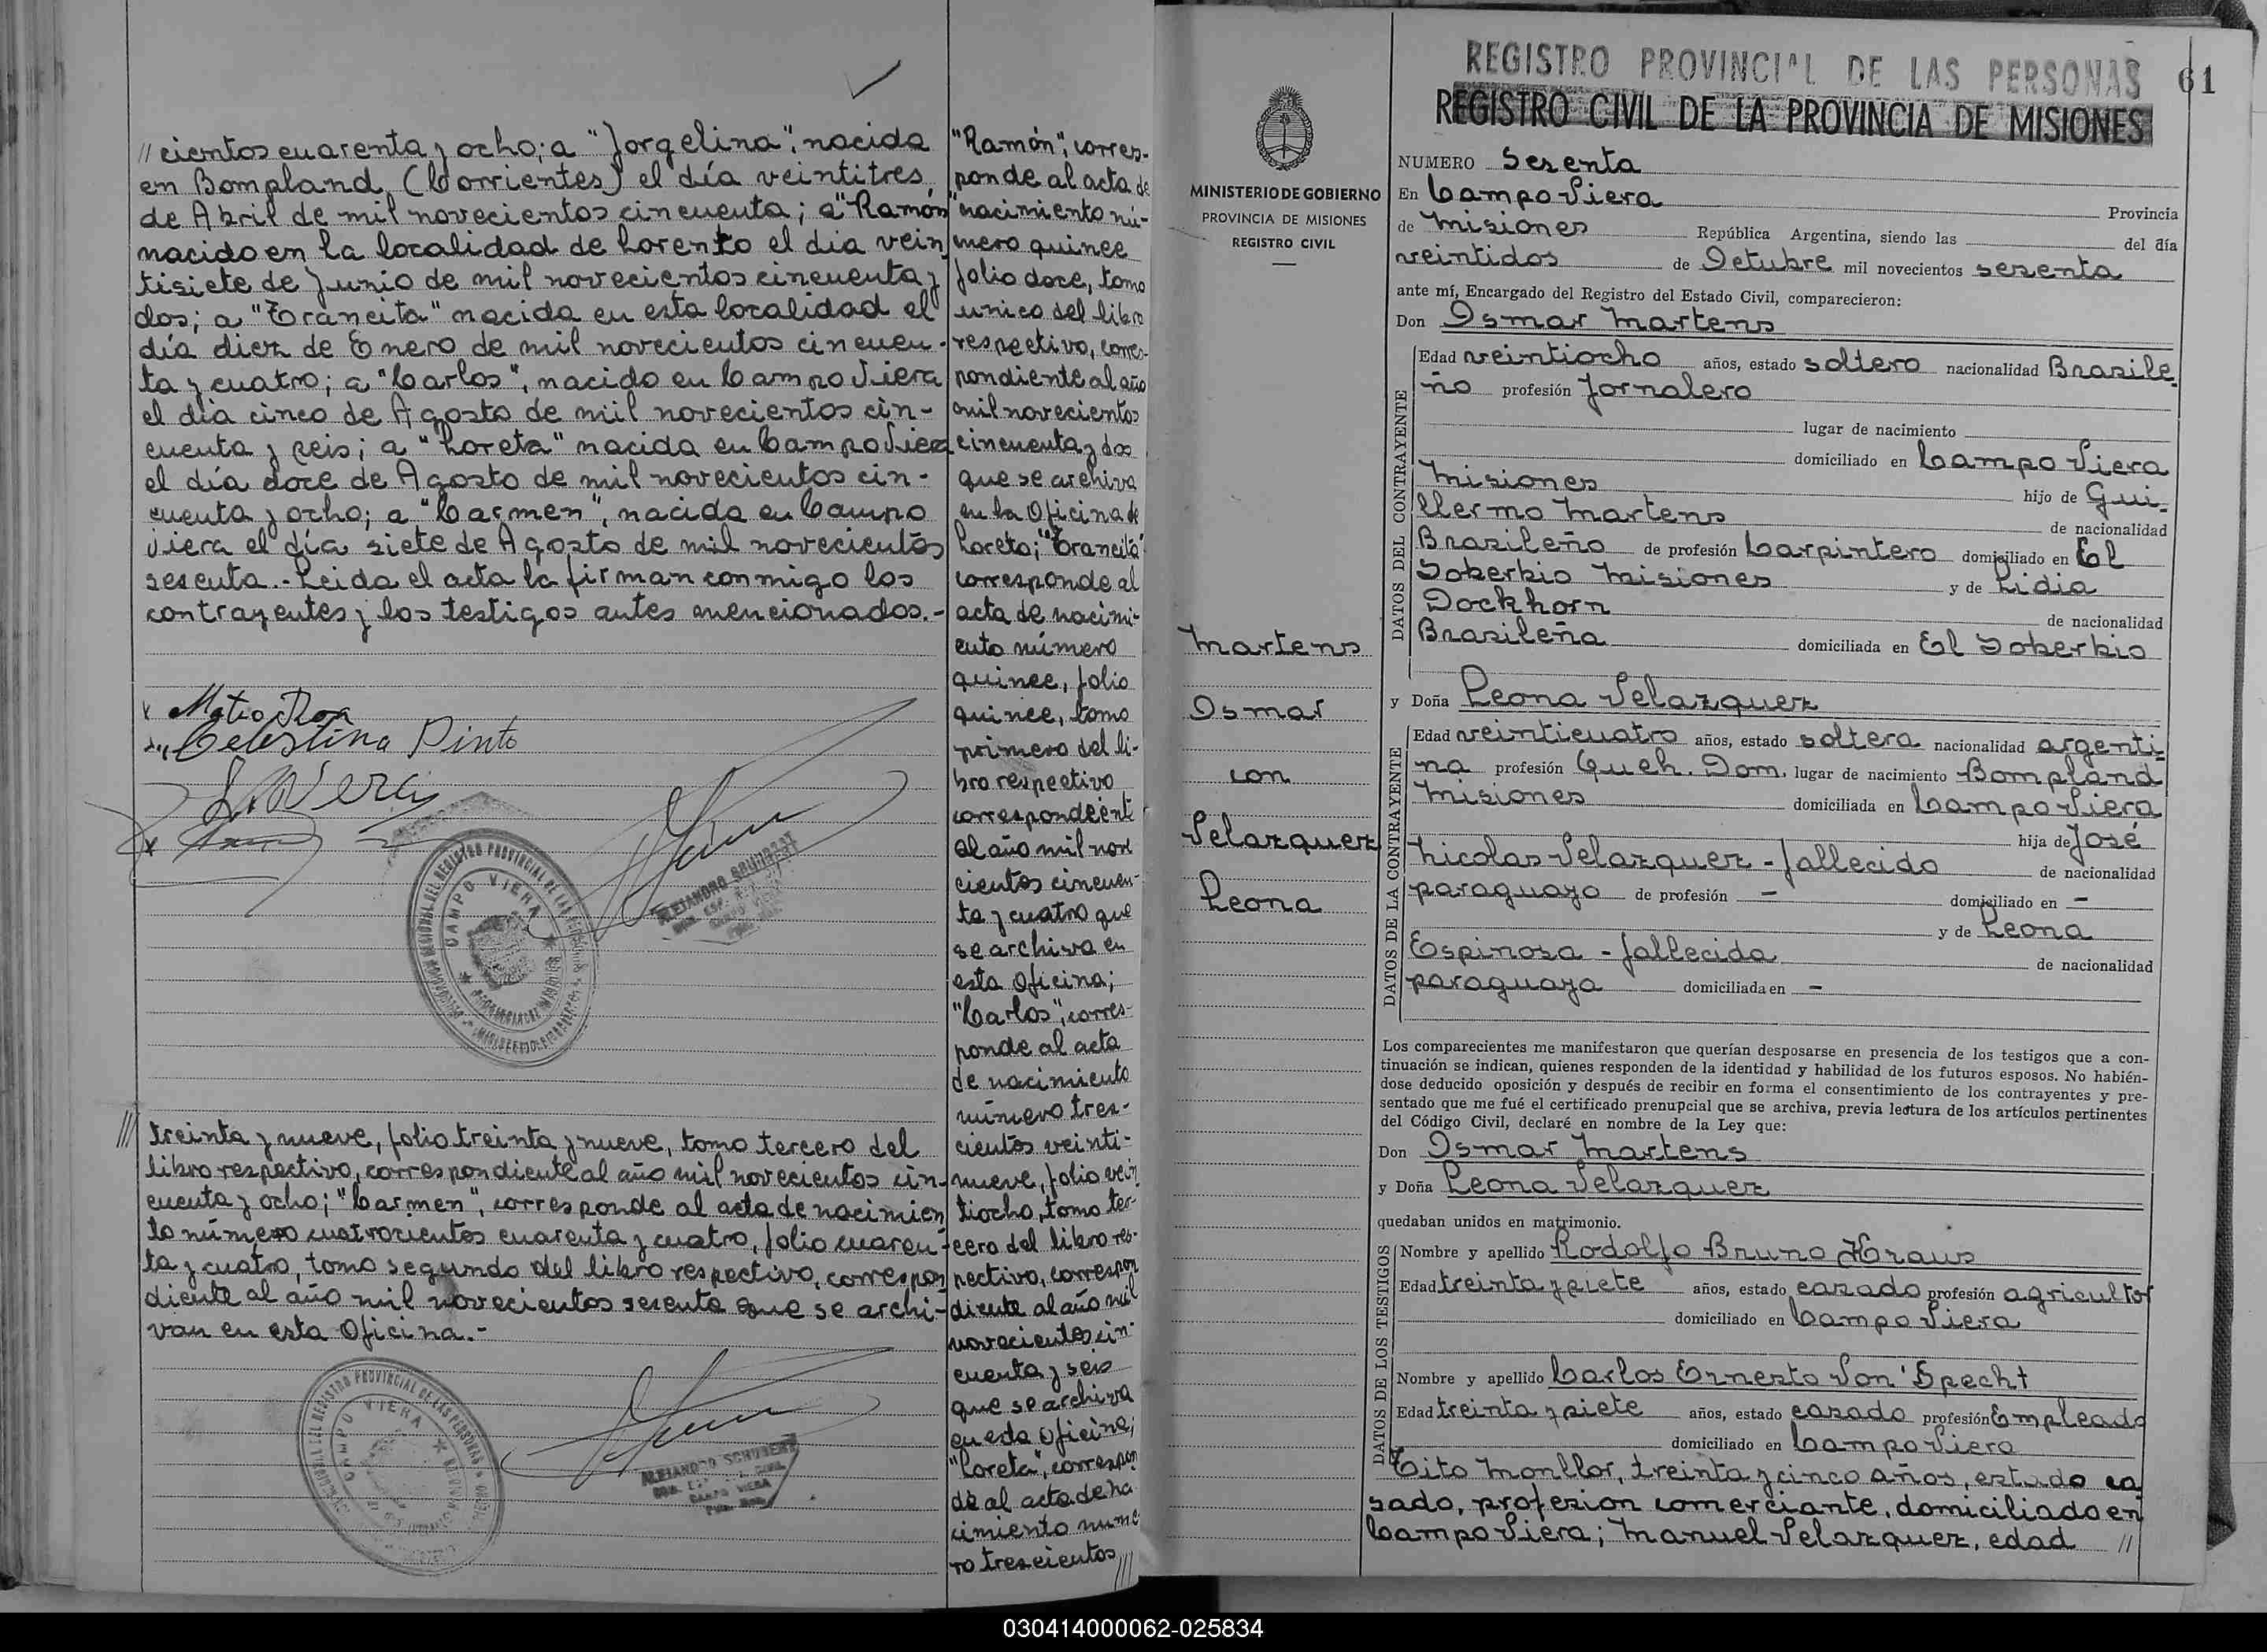 // cientos cuarenta y ocho; a "Jorgelina", nacida
en Bompland, (Corrientes) el día veintitres
de Abril de mil novecientos cincuenta; a "Ramón"
nacido en la localidad de Lorento el día vein
tisiete de Junio de mil novecientos cincuenta y
dos; a "Francita" nacida en esta localidad el
día diez de Enero de mil novecientos cincuen-
ta y cuatro; a "Carlos", nacido en Campo Viera
el día cinco de Agosto de mil novecientos cin-
cuenta y seis; a "Loreta" nacida en Campo Viera
el día doce de Agosto de mil novecientos cin-
cuenta y ocho; a "Carmen", nacida en Campo
Viera el día siete de Agosto de mil novecientos
sesenta.- Leida el acta la firman conmigo los
contrayentes y los testigos antes mencionados.-
Mateo Roa
Celestina Pinto
CAMPO VIERA
/// treinta y nueve, folio treinta y nueve, tomo tercero del
libro respectivo, correspondiente al año mil novecientos cin-
cuenta y ocho; "Carmen", corresponde al acta de nacimien
to número cuatrocientos cuarenta y cuatro, folio cuaren-
ta y cuatro, tomo segundo del libro respectivo, correspon
diente al año mil novecientos sesenta que se archi-
van en esta Oficina.-
CAMPO VIERA
ALEJANDRO SCHUBERT
CAMPO VIERA
"Ramón", corres-
ponde al acta de
nacimiento nú-
mero quince
folio doce, tomo
unico del libro
respectivo, corres-
pondiente al año
mil novecientos
cincuenta y dos
que se archiva
en la Oficina de
Loreto; "Francita"
corresponde al
acta de nacimi-
ento número
quince, folio
quince, tomo
primero del li-
bro respectivo
correspondient
al año mil nove
cientos cincuen-
ta y cuatro que
se archiva en
esta Oficina;
"Carlos", corres-
ponde al acta
de nacimiento
número tres-
cientos veinti-
nueve, folio vein
tiocho, tomo ter-
cero del libro res-
pectivo, correspon
diente al año mil
novecientos cin-
cuenta y seis
que se archiva
en esta Oficina;
"Loreta", correspon
de al acta de na
cimiento núme
ro trescientos ///
MINISTERIO DE GOBIERNO
PROVINCIA DE MISIONES
REGISTRO CIVIL
Martens
Osmar
con
Velazquez
Leona
REGISTRO PROVINCIAL DE LAS PERSONAS 61
REGISTRO CIVIL DE LA PROVINCIA DE MISIONES
NUMERO Sesenta
En Campo Viera Provincia
de Misiones República Argentina, siendo las del día
veintidos de Octubre mil novecientos sesenta
ante mí, Encargado del Registro del Estado Civil, comparecieron:
Don Osmar Martens
DATOS DEL CONTRAYENTE
Edad veintiocho años, estado soltero nacionalidad Brasile-
ño profesión Jornalero
lugar de nacimiento
domiciliado en Campo Viera
Misiones hijo de Gui-
llermo Martens de nacionalidad
Brasileño de profesión Carpintero domiciliado en El
Soberbio Misiones y de Lidia
Dockhorn de nacionalidad
Brasileña domiciliada en El Soberbio
y Doña Leona Velazquez
DATOS DE LA CONTRAYENTE
Edad veinticuatro años, estado soltera nacionalidad argenti-
na profesión Queh. Dom. lugar de nacimiento Bompland
Misiones domiciliada en Campo Viera
hija de José
Nicolas Velazquez - fallecido de nacionalidad
paraguayo de profesión - domiciliado en -
y de Leona
Espinosa - fallecida de nacionalidad
paraguaya domiciliada en -
Los comparecientes me manifestaron que querían desposarse en presencia de los testigos que a con-
tinuación se indican, quienes responden de la identidad y habilidad de los futuros esposos. No habién-
dose deducido oposición y después de recibir en forma el consentimiento de los contrayentes y pre-
sentado que me fué el certificado prenupcial que se archiva, previa lectura de los artículos pertinentes
del Código Civil, declaré en nombre de la Ley que:
Don Osmar Martens
y Doña Leona Velazquez
quedaban unidos en matrimonio.
DATOS DE LOS TESTIGOS
Nombre y apellido Rodolfo Bruno Kraus
Edad treinta y siete años, estado casado profesión agricultor
domiciliado en Campo Viera
DATOS DE LOS TESTIGOS
Nombre y apellido Carlos Ernesto Von' Specht
Edad treinta y siete años, estado casado profesión Empleado
domiciliado en Campo Viera
Tito Monllor, treinta y cinco años, estado ca
sado, profesion comerciante, domiciliado en
Campo Viera; Manuel Velazquez, edad //
030414000062-025834